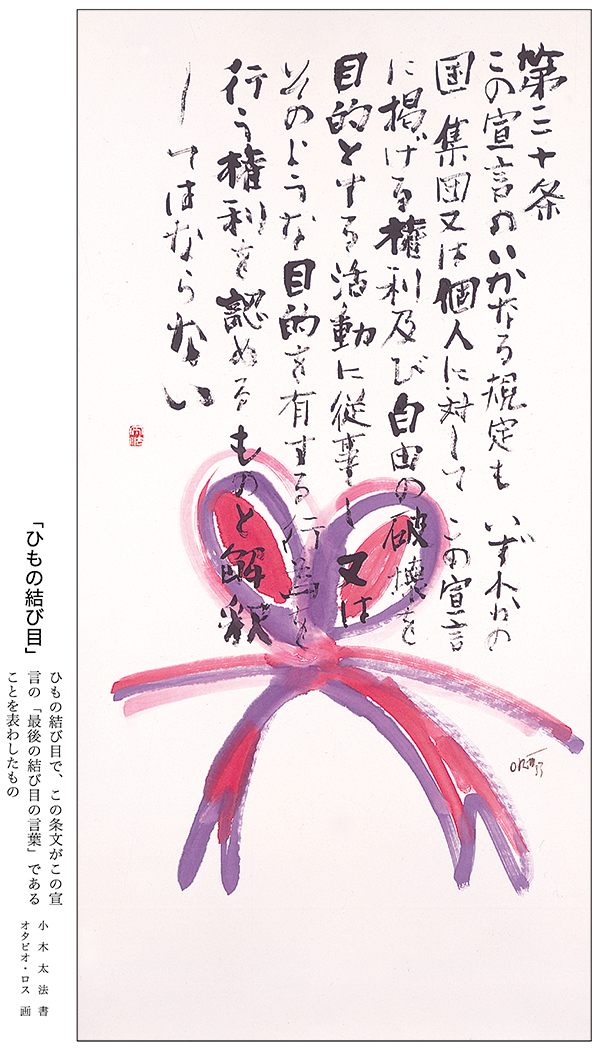 第三十条
この宣言のいかなる規定も いずれかの
国 集団又は個人に対して この宣言
に掲げる権利及び自由の破壊を
目的とする活動に従事し 又は
そのような目的を有する行為を
行う権利を認めるものと解釈
してはならない
「ひもの結び目」
ひもの結び目で、この条文がこの宣
言の「最後の結び目の言葉」である
ことを表わしたもの
小木太法 書
オタビオ・ロス 画